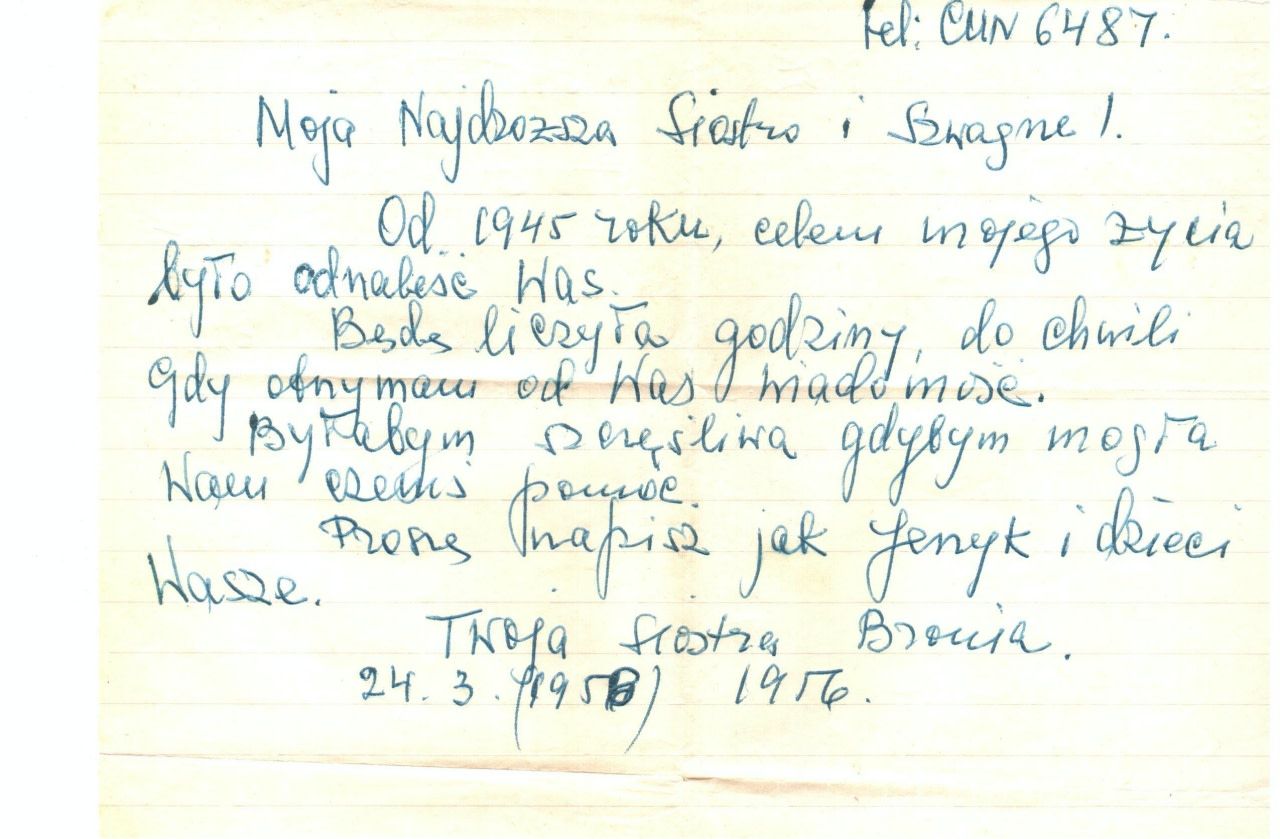 Tel: CUN 6487.
Moja Najdrozsza Siostro i Szwagrze!.
Od 1945 roku, celem mojego zycia
było odnaleść Was.
Będę liczyła godziny, do chwili
gdy otrzymam od Was wiadomość.
Byłabym szczęśliwa gdybym mogła
Wam czemś pomóc.
Proszę napisz jak Jerzyk i dzieci
Wasze.
Twoja Siostra Bronia.
24. 3. (1958) 1956.